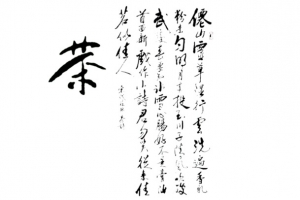 僊山靈草湿行雲洗遍香肌
粉未勻明月來投玉川子清風吹破
武林春要知冰雪心腸好不是膏油
首面新戲作小詩君勿笑從來佳
茗似佳人
茶